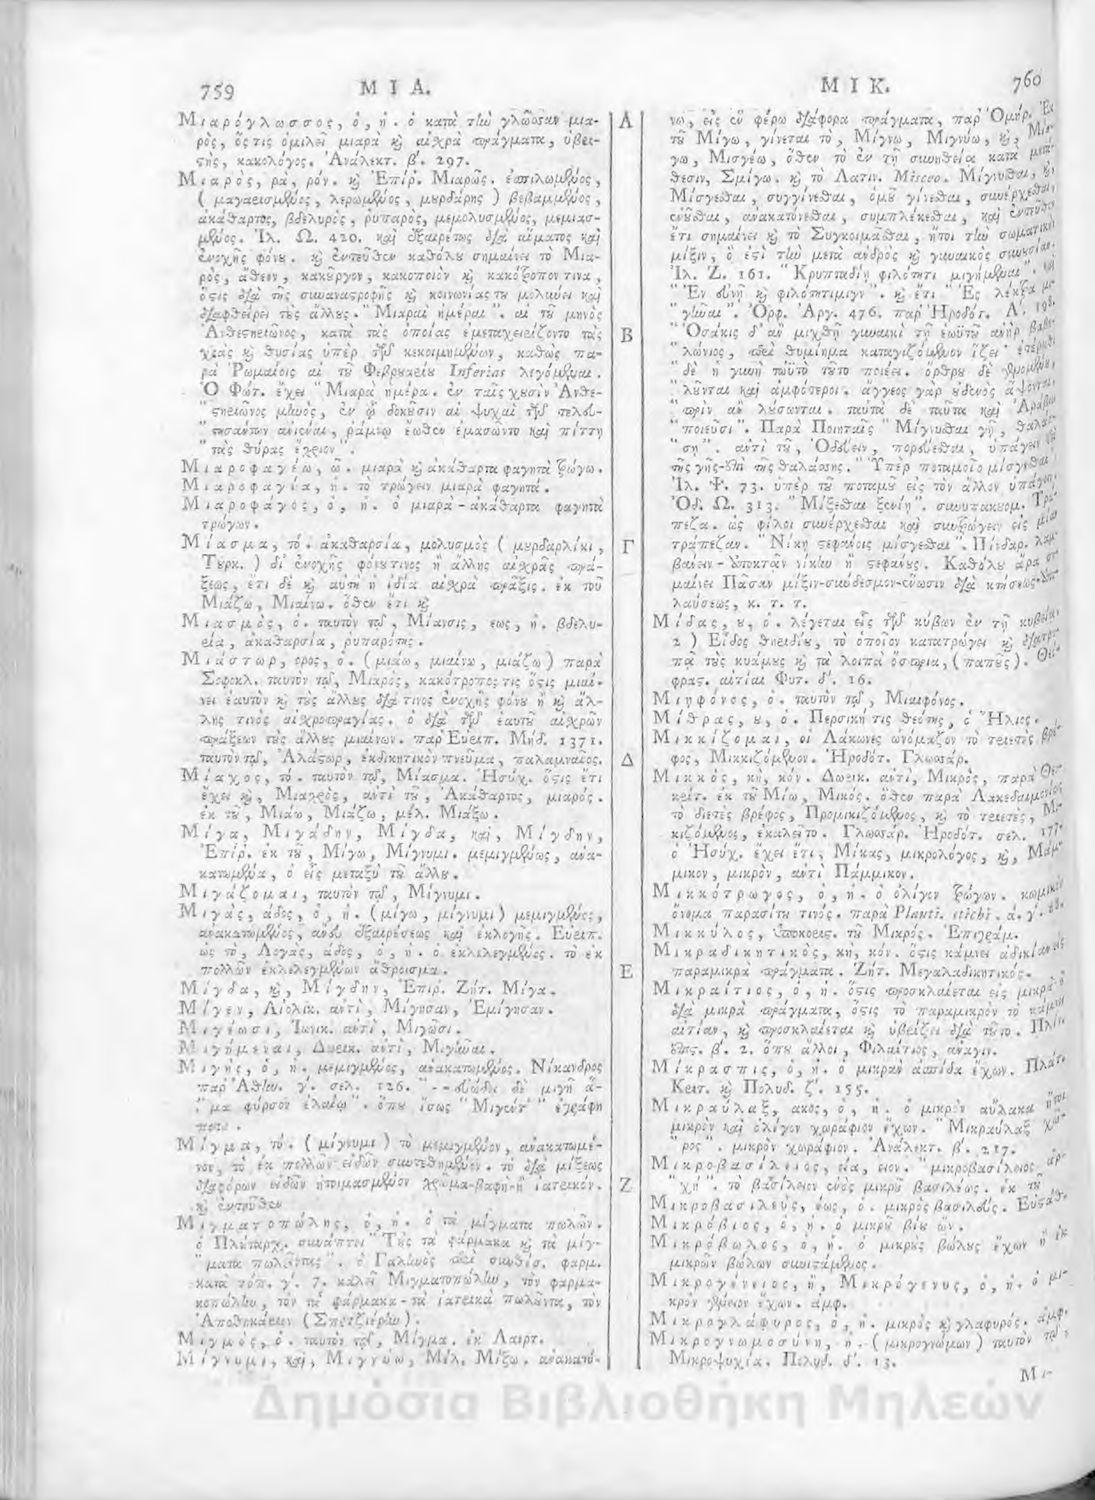 759 ΜΙΑ.
Μιαρόγλωσσος, ὁ, ἡ. ὁ κατὰ τὴν γλῶσσαν μια-
ρὸς, ὅςτις ὁμιλεῖ μιαρὰ καὶ αἰχρὰ πράγματα, ὑβρι-
στὴς, κακολόγος. Ἀνάλεκτ. β'. 297.
Μιαρὸς, ρὰ, ρόν. καὶ Ἐπίρ. Μιαρῶς. ἐσπιλωμένος,
( μαγαρισμένος, λερωμένος, μουρδάρης ) βεβαμμένος,
ἀκάθαρτος, βδελυρὸς, ῥυπαρὸς, μεμολυσμένος, μεμιασ-
μένος. Ἰλ. Ω. 420. καὶ ἐξαιρέτως διὰ αἵματος καὶ
ἐνοχῆς φόνου. καὶ ἐντεῦθεν καθόλου σημαίνει τὸ Μια-
ρὸς, ἄθεον, κακοῦργον, κακοποιὸν καὶ κακότροπον τινα,
ὅστις διὰ τῆς συναναστροφῆς καὶ κοινωνίας του μολύνει καὶ
διαφθείρει τοὺς ἄλλους. " Μιαραὶ ἡμέραι ". αἱ τοῦ μηνὸς
Ἀνθεστηριῶνος, κατὰ τὰς ὁποίας ἐμεταχειρίζοντο τὰς
χοὰς καὶ θυσίας ὑπὲρ τῶν κεκοιμημένων, καθὼς πα-
ρὰ Ῥωμαίοις αἱ τοῦ Φεβρουαρίου Inferiae λεγόμεναι.
Ὁ Φώτ. ἔχει " Μιαρὰ ἡμέρα. ἐν ταῖς χουσὶν Ἀνθε-
" στηριῶνος μηνος, ἐν ᾧ δοκοῦσιν αἱ ψυχαὶ τῶν τελευ-
" τησάντων ἀνιέναι, ῥάμνῳ ἕωθεν ἐμασῶντο καὶ πίττῃ
" τὰς θύρας ἔχριον ".
Μιαροφαγέω, ῶ. μιαρὰ καὶ ἀκάθαρτα φαγητὰ τρώγω.
Μιαροφαγία, ἡ. τὸ τρώγειν μιαρὰ φαγητά.
Μιαροφάγος, ὁ, ἡ. ὁ μιαρὰ - ἀκάθαρτα φαγητὰ
τρώγων.
Μίασμα, τό. ἀκαθαρσία, μολυσμὸς ( μουρδαρλίκι,
Τουρκ. ) δι' ἐνοχῆς φόνου τινος ἢ ἄλλης αἰχρᾶς πρά-
ξεως, ἔτι δὲ καὶ αὐτὴ ἡ ἰδία αἰχρὰ πρᾶξις. ἐκ τοῦ
Μιάζω, Μιαίνω. ὅθεν ἔτι καὶ
Μιασμὸς, ὁ. ταυτὸν τῷ, Μίανσις, εως, ἡ. βδελυ-
ρία, ἀκαθαρσία, ῥυπαρότης.
Μιάστωρ, ορος, ὁ. ( μιάω, μιαίνω, μιάζω ) παρὰ
Σοφοκλ. ταυτὸν τῷ, Μιαρὸς, κακότροπος τις ὅστις μιαί-
νει ἑαυτὸν καὶ τοὺς ἄλλους διὰ τινος ἐνοχῆς φόνου ἢ καὶ ἄλ-
λης τινὸς αἰχροπραγίας. ὁ διὰ τῶν ἑαυτοῦ αἰχρῶν
πράξεων τοὺς ἄλλους μιαίνων. παρ' Εὐριπ. Μήδ. 1371.
ταυτὸν τῷ, Ἀλάστωρ, ἐκδικητικὸν πνεῦμα, παλαμναῖος.
Μίαχος, τό. ταυτὸν τῷ, Μίασμα. Ἡσύχ. ὅστις ἔτι
ἔχει καὶ, Μιαχρὸς, αὐτὶ τοῦ, Ἀκάθαρτος, μιαρός.
ἐκ τοῦ, Μιάω, Μιάζω, μέλ. Μιάξω.
Μίγα, Μιγάδην, Μίγδα, καὶ, Μίγδην,
Ἐπίρ. ἐκ τοῦ, Μίγω, Μίγνυμι. μεμιγμένως, ἀνα-
κατωμένα, ὁ εἷς μεταξὺ τοῦ ἄλλου.
Μιγάζομαι, ταυτὸν τῷ, Μίγνυμι.
Μιγὰς, άδος, ὁ, ἡ. ( μίγω, μίγνυμι ) μεμιγμένος,
ἀνακατωμένος, ἄνευ ἐξαιρέσεως καὶ ἐκλογῆς. Εὐριπ.
ὡς τὸ, Λογὰς, άδος, ὁ, ἡ. ὁ ἐκλελεγμένος. τὸ ἐκ
πολλῶν ἐκλελεγμένων ἄθροισμα.
Μίγδα, καὶ, Μίγδην, Ἐπίρ. Ζήτ. Μίγα.
Μίγεν, Αἰολικ. ἀντὶ, Μίγησαν, Ἐμίγησαν.
Μιγέωσι, Ἰωνικ. ἀντὶ, Μιγῶσι.
Μιγήμεναι, Δωρικ. ἀντὶ, Μιγῆναι.
Μιγὴς, ὁ, ἡ. μεμιγμένος, ἀνακατωμένος. Νίκανδρος
παρ' Ἀθην. γ'. σελ. 126.
ποτε.
Μίγμα, τό. ( μίγνυμι ) τὸ μεμιγμένον, ἀνακατωμέ-
νον, τὸ ἐκ πολλῶν εἰδῶν συντεθημένον. τὸ διὰ μίξεως
διαφόρων εἰδῶν ἡτοιμασμένον χρῶμα-βαφὴ-ἢ ἰατρικόν.
καὶ ἐντεῦθεν
Μιγματοπώλης, ὁ, ἡ. ὁ τὰ μίγματα πωλῶν.
ὁ Πλούταρχ. συνάπτει " Τοὺς τὰ φάρμακα καὶ τὰ μίγ-
" ματα πωλοῦντας ". ὁ Γαληνὸς περὶ συνθέσ. φαρμ.
κατὰ τόπ. γ'. 7. καλεῖ Μιγματοπώλην, τὸν φαρμα-
κοπώλην, τὸν τὰ φάρμακα - τὰ ἰατρικὰ πωλοῦντα, τὸν
Ἀποθηκάριον ( Σπετζιέρην ).
Μιγμὸς, ὁ. ταυτὸν τῷ, Μίγμα. ἐκ Λαερτ.
Μίγνυμι, καὶ, Μιγνύω, Μέλ. Μίξω. ἀνακατό-
Α
Β
Γ
Δ
Ε
Ζ
ΜΙΚ. 760
νω, εἰς ἓν φέρω διάφορα πράγματα, παρ' Ὁμήρ. Ἐκ
τοῦ Μίγω, γίνεται τὸ, Μίγνω, Μιγνύω, καὶ, Μίσ-
γω, Μισγέω, ὅθεν τὸ ἐν τῇ συνηθείᾳ κατὰ μετά-
θεσιν, Σμίγω. καὶ τὸ Λατιν. Misceo. Μίγνυσθαι, καὶ
Μίσγεσθαι, συγγίνεσθαι, ὁμοῦ γίνεσθαι, συνέρχεσθαι,
ἑνοῦσθαι, ἀνακατόνεσθαι, συμπλέκεσθαι, καὶ ἐντεῦθεν
ἔτι σημαίνει καὶ τὸ Συγκοιμᾶσθαι, ἤτοι τὴν σωματικὴν
μίξιν, ὅ ἐστι τὴν μετὰ ἀνδρὸς καὶ γυναικὸς συνουσίαν.
Ἰλ. Ζ. 161. " Κρυπταδίῃ φιλότητι μιγήμεναι ". καὶ
" Ἐν εὐνῇ καὶ φιλότητι μιγῆν ". καὶ ἔτι " Ἐς λέκτρα μι-
" γῆναι ". Ὀρφ. Ἀργ. 476. παρ' Ἡροδότ. Α'. 198.
" Ὁσάκις δ' ἂν μιχθῇ γυναικὶ τῇ ἑωϋτοῦ ἀνὴρ Βαβυ-
" λώνιος, περὶ θυμίημα καταγιζόμενον ἵζει· ἑτέρωθι
" δὲ ἡ γυνὴ τωὐτὸ τοῦτο ποιέει. ὄρθρου δὲ γενομένου,
" λοῦνται καὶ ἀμφότεροι. ἄγγεος γὰρ οὐδενὸς ἅψονται,
" πρὶν ἂν λούσωνται. ταὐτὰ δὲ ταῦτα καὶ Ἀράβιοι
" ποιεῦσι ". Παρὰ Ποιηταῖς " Μίγνυσθαι γῇ, θαλάσ-
" σῃ ". ἀντὶ τοῦ, Ὁδεύειν, πορεύεσθαι, ὑπάγειν διὰ
τῆς γῆς-ἐπὶ τῆς θαλάσσης. " Ὑπὲρ ποταμοῖο μίσγεσθαι ".
Ἰλ. Ψ. 73. ὑπὲρ τοῦ ποταμοῦ εἰς τὸν ἄλλον ὑπάγειν.
Ὀδ. Ω. 313. " Μίξεσθαι ξενίῃ ". συνυπακουομ. Τρα-
πεζα. ὡς φίλοι συνέρχεσθαι καὶ συντρώγειν εἰς μίαν
τράπεζαν. " Νίκῃ στεφάνοις μίσγεσθαι ". Πίνδαρ. λαμ-
βάνειν - ἀποκτᾶν νίκην ἢ στεφάνους. Καθόλου ἄρα ση-
μαίνει Πᾶσαν μίξιν-σύνδεσμον-ἕνωσιν διὰ κτήσεως-ἀπο-
λαύσεως, κ. τ. τ.
Μίδας, ου, ὁ. λέγεται εἷς τῶν κύβων ἐν τῇ κυβείᾳ.
2 ) Εἶδος θηριδίου, τὸ ὁποῖον κατατρώγει καὶ διατρυ-
πᾷ τοὺς κυάμους καὶ τὰ λοιπὰ ὄσπρια, ( παπούς ). Θεό-
φρασ. αἰτίαι Φυτ. δ'. 16.
Μιηφόνος, ὁ. ταυτὸν τῷ, Μιαιφόνος.
Μίθρας, ου, ὁ. Περσική τις θεότης, ὁ Ἥλιος.
Μικκίζομαι, οἱ Λάκωνες ὠνόμαζον τὸ τριετὲς βρέ-
φος, Μικκιζόμενον. Ἡροδότ. Γλωσσάρ.
Μικκὸς, κὴ, κόν. Δωρικ. ἀντὶ, Μικρὸς, παρὰ Θεο-
κρίτ. ἐκ τοῦ Μίω, Μικός. ὅθεν παρὰ Λακεδαιμονίοις
τὸ διετὲς βρέφος, Προμικιζόμενος, καὶ τὸ τριετὲς, Μι-
κιζόμενος, ἐκαλεῖτο. Γλωσσάρ. Ἡροδότ. σελ. 177.
ὁ Ἡσύχ. ἔχει ἔτι, Μίκας, μικρολόγος, καὶ, Μάμ-
μικον, μικρὸν, ἀντὶ Πάμμικον.
Μικκότρωγος, ὁ, ἡ. ὁ ὀλίγον τρώγων. κωμικὸν
ὄνομα παρασίτου τινός. παρὰ Plauti. stichi. ά. γ'. 88.
Μικκύλος, ὑποκορις. τοῦ Μικρός. Ἐπιγράμ.
Μικραδικητικὸς, κὴ, κόν. ὅστις κάμνει ἀδικίαν εἰς
παραμικρὰ πράγματα. Ζήτ. Μεγαλαδικητικός.
Μικραίτιος, ὁ, ἡ. ὅστις προσκλαίεται εἰς μικρὰ ὁ
διὰ μικρὰ πράγματα, ὅστις τὸ παραμικρὸν τὸ κάμνει
αἰτίαν, καὶ προσκλαίεται καὶ ὑβρίζει διὰ τοῦτο. Πλίν.
ἐπις. β'. 2. ὅπου ἄλλοι, Φιλαίτιος, ἀνάγιν.
Μίκρασπις, ὁ, ἡ. ὁ μικρὰν ἀσπίδα ἔχων. Πλάτ.
Κριτ. καὶ Πολυδ. ζ'. 155.
Μικραύλαξ, ακος, ὁ, ἡ. ὁ μικρὸν αὔλακα ἤτοι
μικρὸν καὶ ὀλίγον χωράφιον ἔχων. " Μικραύλαξ χῶ-
" ρος ". μικρὸν χωράφιον. Ἀνάλεκτ. β'. 217.
Μικροβασίλειος, εία, ειον. " μικροβασίλειος ἀρ-
" χή ". τὸ βασίλειον ἑνὸς μικροῦ βασιλέως. ἐκ τοῦ
Μικροβασιλεὺς, έως, ὁ. μικρὸς βασιλεύς. Εὐσταθ.
Μικρόβιος, ὁ, ἡ. ὁ μικροῦ βίου ὤν.
Μικρόβωλος, ὁ, ἡ. ὁ μικροὺς βώλους ἔχων ἢ ἐκ
μικρῶν βώλων συνιστάμενος.
Μικρογένειος, ἢ, Μικρόγενυς, ὁ, ἡ. ὁ μι-
κρὸν γένειον ἔχων. ἀμφ.
Μικρογλάφυρος, ὁ, ἡ. μικρὸς καὶ γλαφυρός. ἀμφ.
Μικρογνωμοσύνη, ἡ. ( μικρογνώμων ) ταυτὸν τῷ,
Μικροψυχία. Πολυδ. δ'. 13.
Μι-
Δημόσια Βιβλιοθήκη Μηλεών